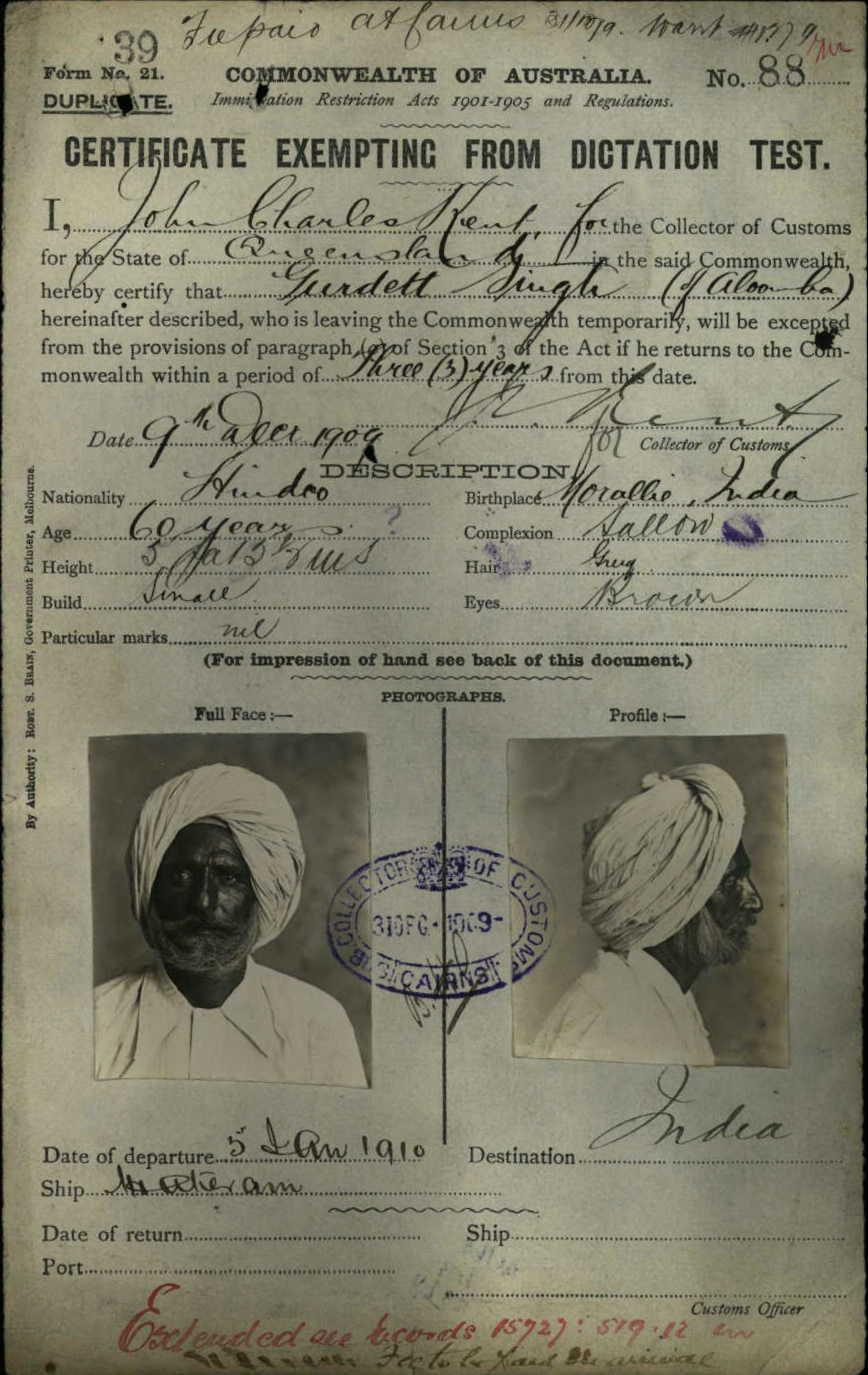 39 Fee paid at Cairns 31/12/9.
Form No. 21.
COMMONWEALTH OF AUSTRALIA.
No. 88
DUPLICATE.
Immigration Restriction Acts 1901-1905 and Regulations.
CERTIFICATE EXEMPTING FROM DICTATION TEST.
I, John Charles Kent, for the Collector of Customs
for the State of Queensland in the said Commonwealth,
hereby certify that Gurdett Singh (of Aloomba)
hereinafter described, who is leaving the Commonwealth temporarily, will be excepted
from the provisions of paragraph (a) of Section 3 of the Act if he returns to the Com-
monwealth within a period of three (3) years from this date.
J. C. Kent
Date 9th Decr 1909 for Collector of Customs
DESCRIPTION
Nationality Hindoo Birthplace Morallie, India
Age 60 years ? Complexion Sallow
Height 5 Hair Grey
Build Small Eyes Brown
Particular marks nil
(For impression of hand see back of this document.)
PHOTOGRAPHS.
Full Face :— Profile :—
COLLECTOR OF CUSTOMS
31 DEC. 1909
CAIRNS
Date of departure 5 Jan 1910 Destination India
Ship Mataram
Date of return Ship
Port
Customs Officer
Extended see records 15727: 5/9.12
Fee to be paid on arrival
By Authority: ROBT. S. BRAIN, Government Printer, Melbourne.